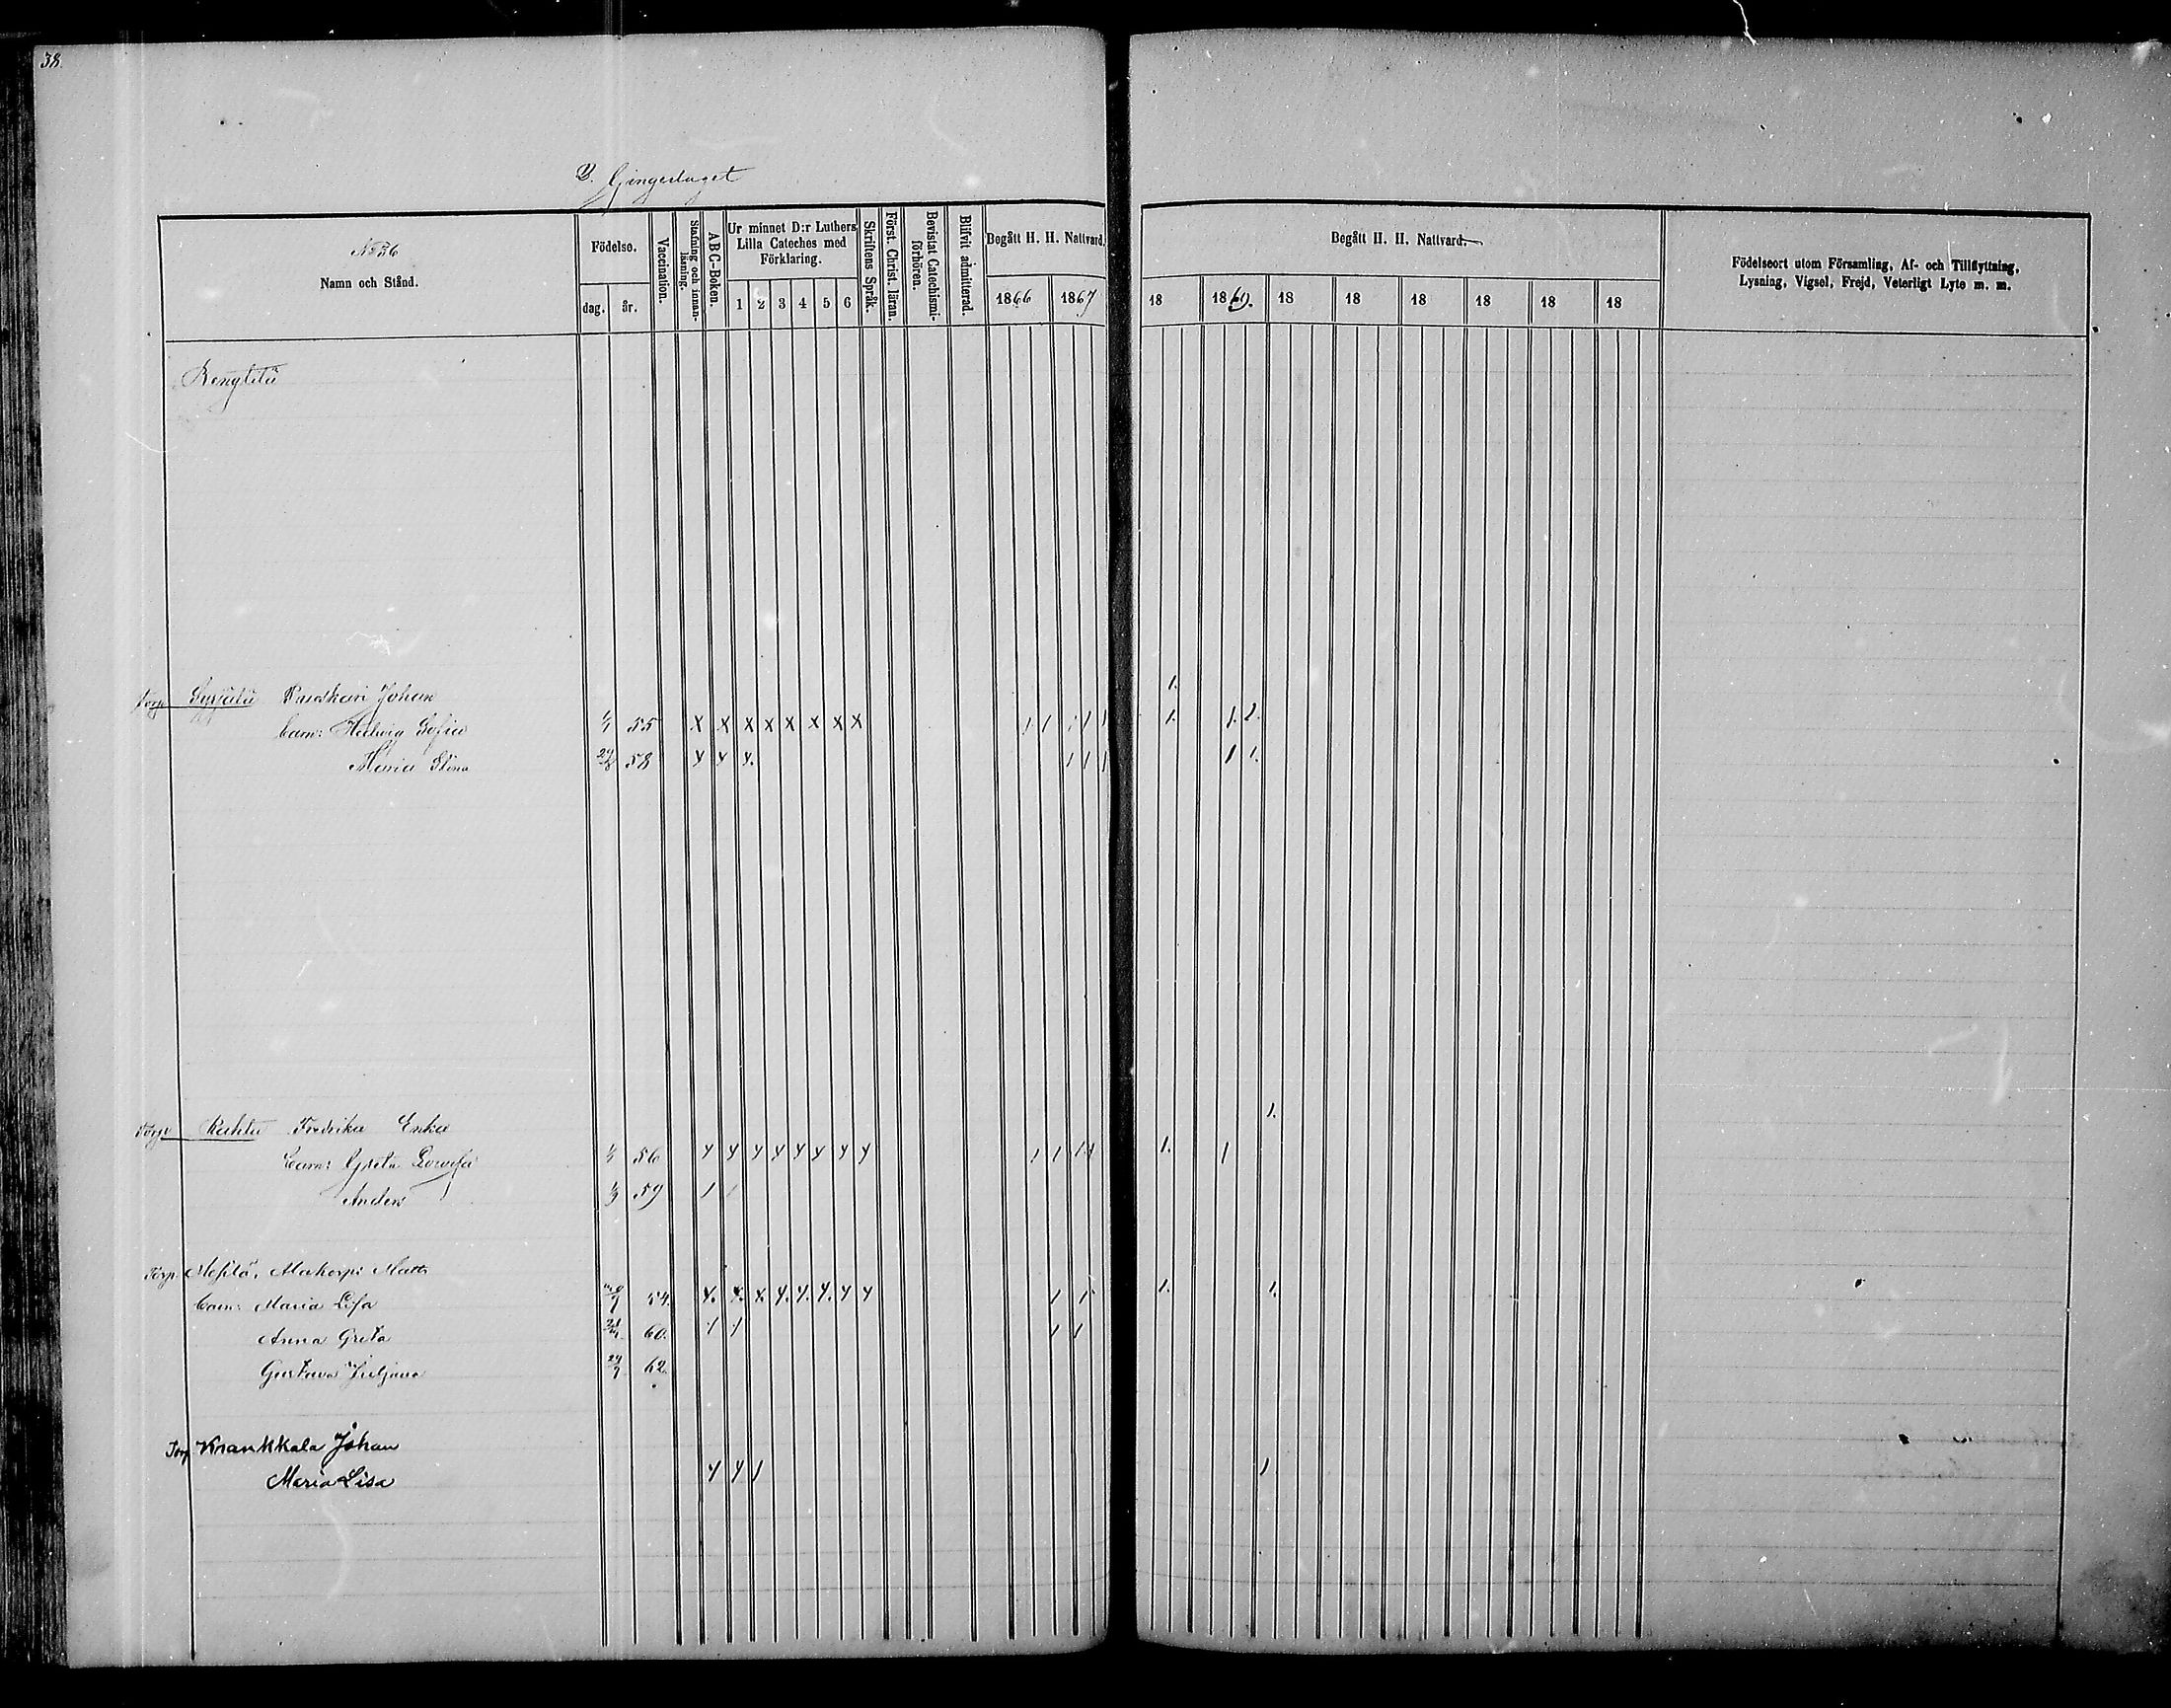 38.
No 36
Namn och Stånd.
Födelse.
dag. år.
Vaccination.
Stafning och innanläsning.
A B C-Boken.
Ur minnet D:r Luthers Lilla Cateches med Förklaring.
1 2 3 4 5 6
Skriftens Språk.
Först. Christ. läran.
Bevistat Catechismiförhören.
Blifvit admitterad.
Begått H. H. Nattvard.
1866 1867
Begått H. H. Nattvard.
18 1869. 18 18 18 18 18 18
Födelseort utom Församling, Af- och Tillflyttning,
Lysning, Vigsel, Frejd, Veterligt Lyte m. m.
Bengtilä
Torp Johan 1.
barn: Hedvig Sofia 55 x x x x x x x x 1 1 1 1 1 1. 1. 2.
Maria Stina 58 4 4 4. 1 1 1 1 1.
Torp Fredrika Enka 1.
barn: Greta Lovisa 56 4 4 4 4 4 4 4 4 1 1 1 1. 1
Anders 59 1 1
Torp. Matts
barn: Maria Lisa 54. 4. 4. x. 4. 4. 4. 4 4 1 1 1. 1.
Anna Greta 60. 1 1 1 1
Gustava Juljana 62.
Torp Krankkala Johan
Maria Lisa 4 4 1 1